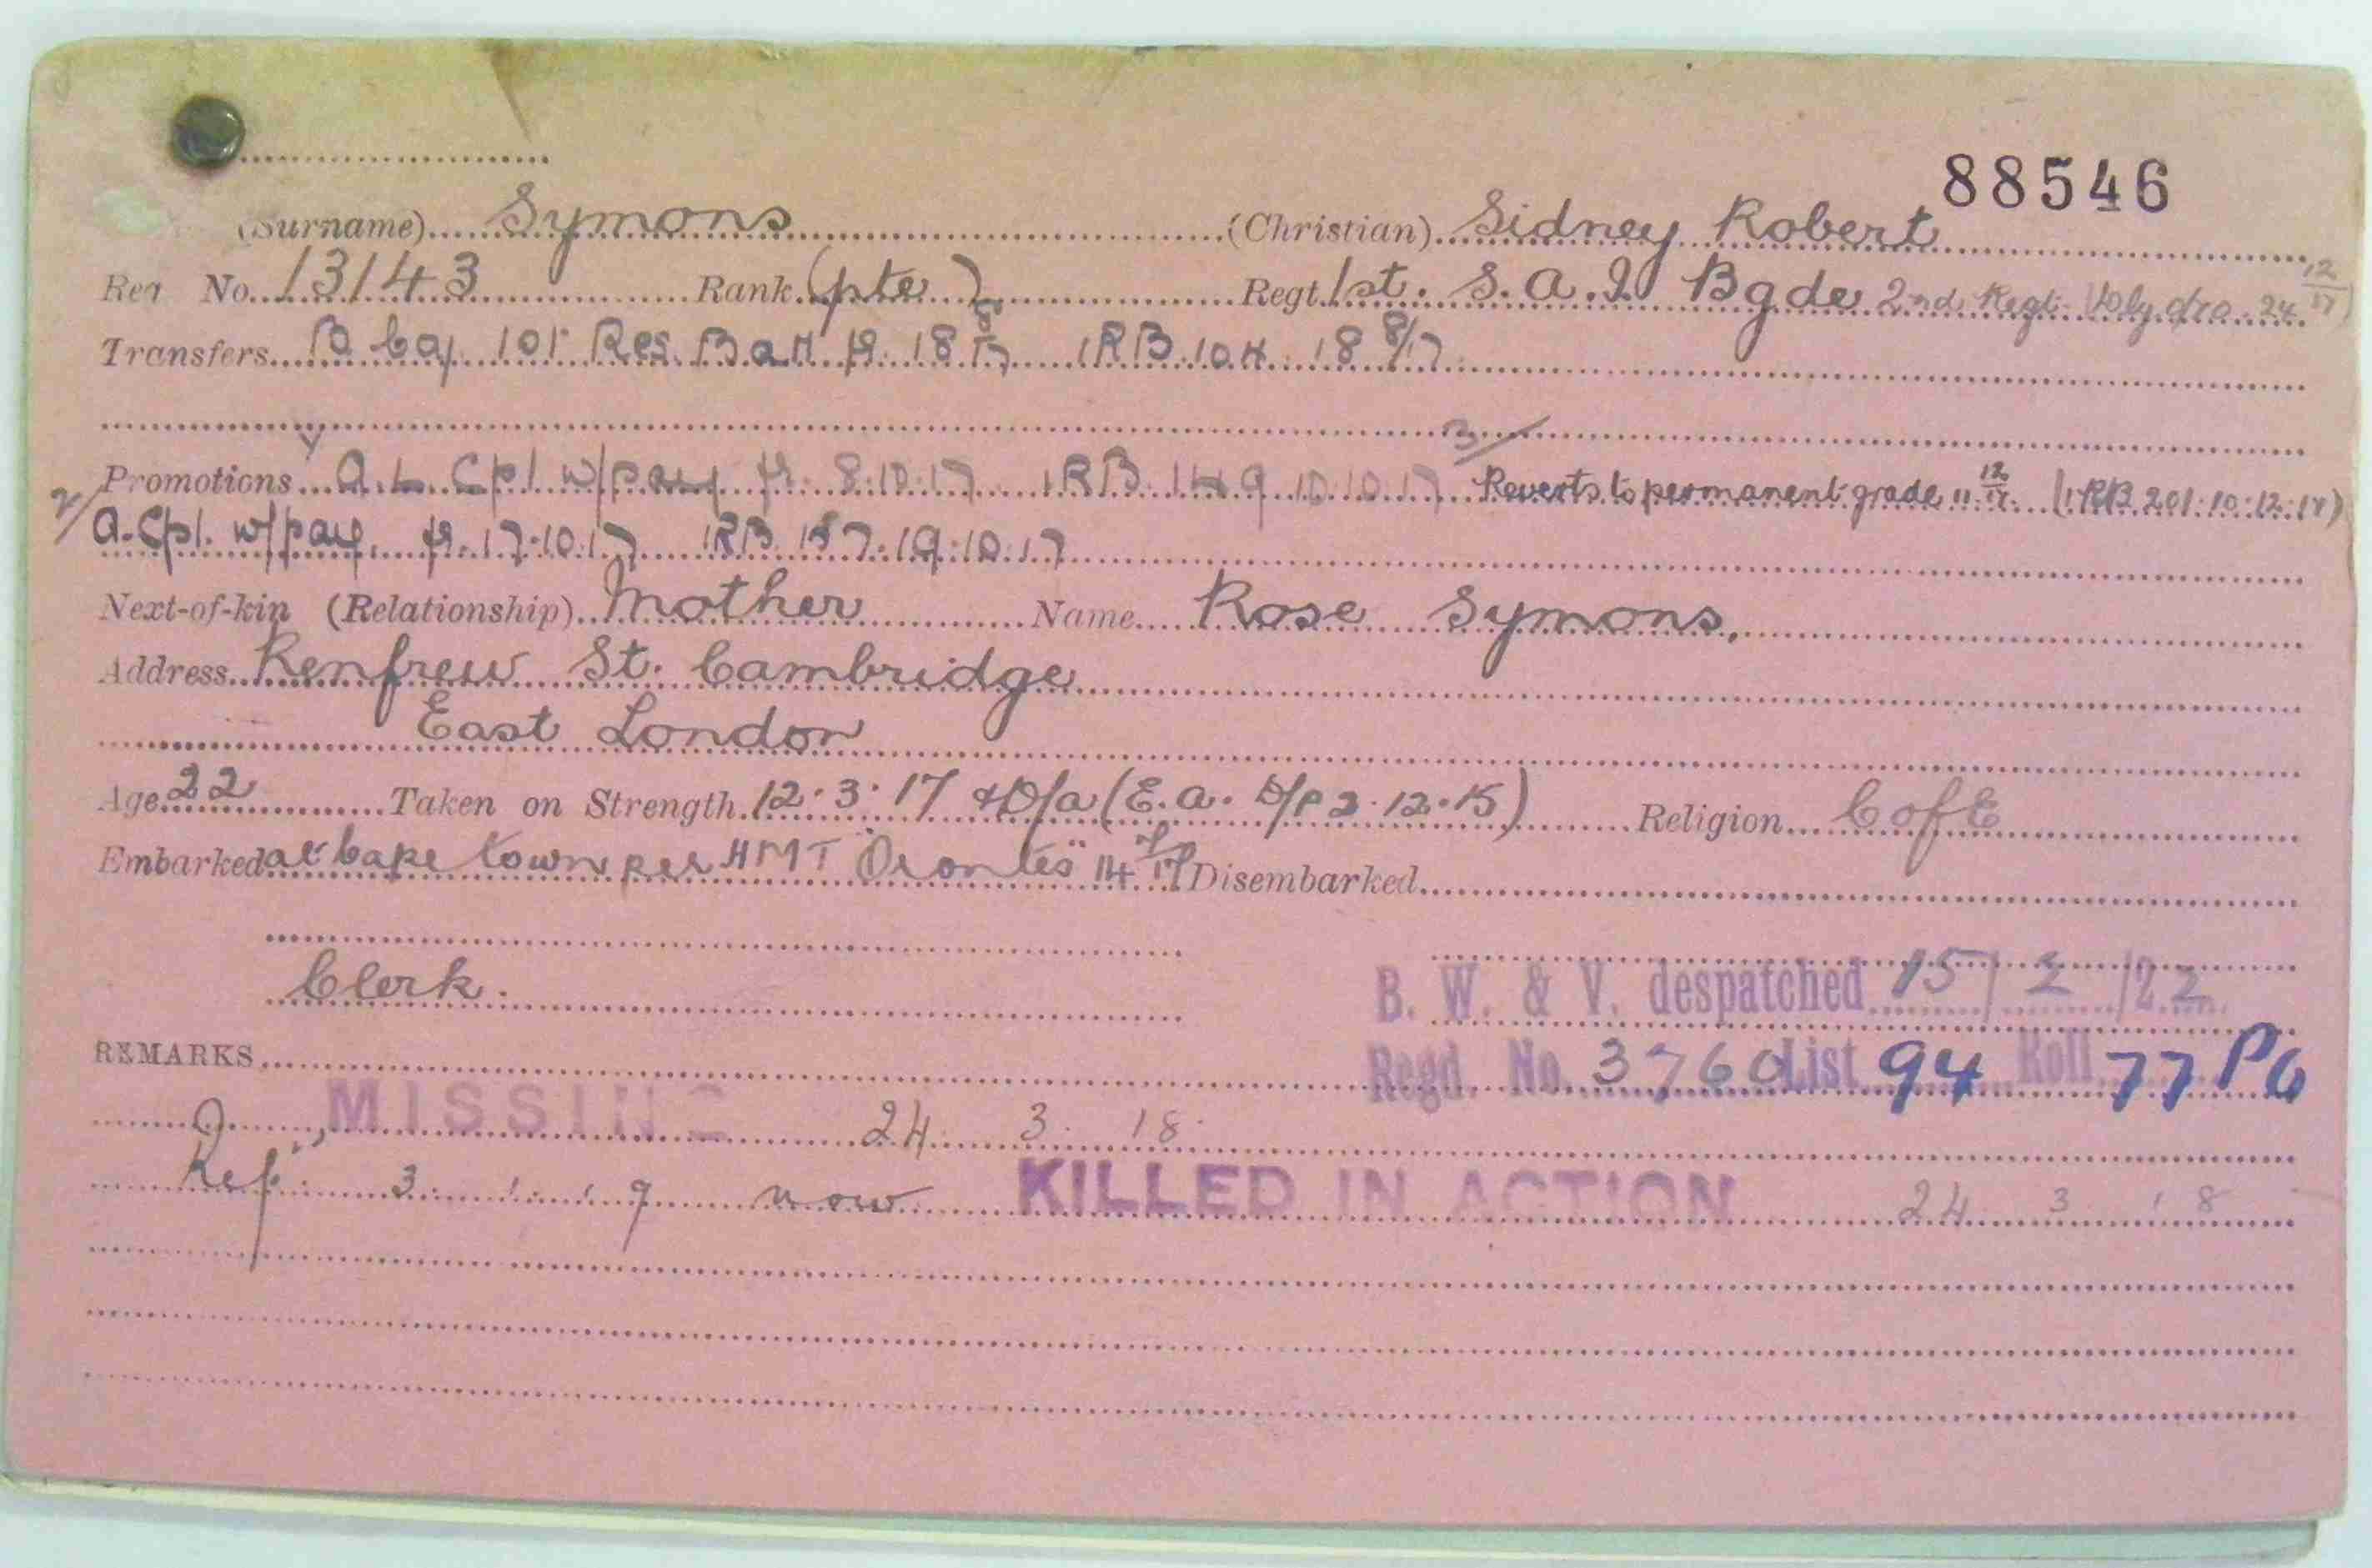 88546
(Surname) Symons (Christian) Sidney Robert
Reg No. 13143 Rank (pte) Regt. 1st. S.A.I Bgde 2nd Regt. 24 12/17)
Transfers B Coy 1st Res Batt fr. 18 8/17 1RB 104 18 8/17
3/
Promotions 1/ A.L. Cpl w/pay fr. 8.10.17 1RB 149 10.10.17 Reverts to permanent grade 11 12/17. (1RB 201. 10.12.17)
2/ A.Cpl. w/pay. fr. 17.10.17 1RB 157. 19.10.17
Next-of-kin (Relationship) Mother Name Rose Symons,
Address Renfrew St. Cambridge
East London
Age 22 Taken on Strength 12.3.17 D/a (E.A. D/P 2.12.15) Religion C of E
Embarked at Cape Town per HMT "Orontes" 14 /17 Disembarked
Clerk.
B. W. & V. despatched 15/2/22
REMARKS
Regd. No. 3760 List 94 Roll 77 PG
MISSING 24 3 18
Ref. 3 now KILLED IN ACTION 24 3 18